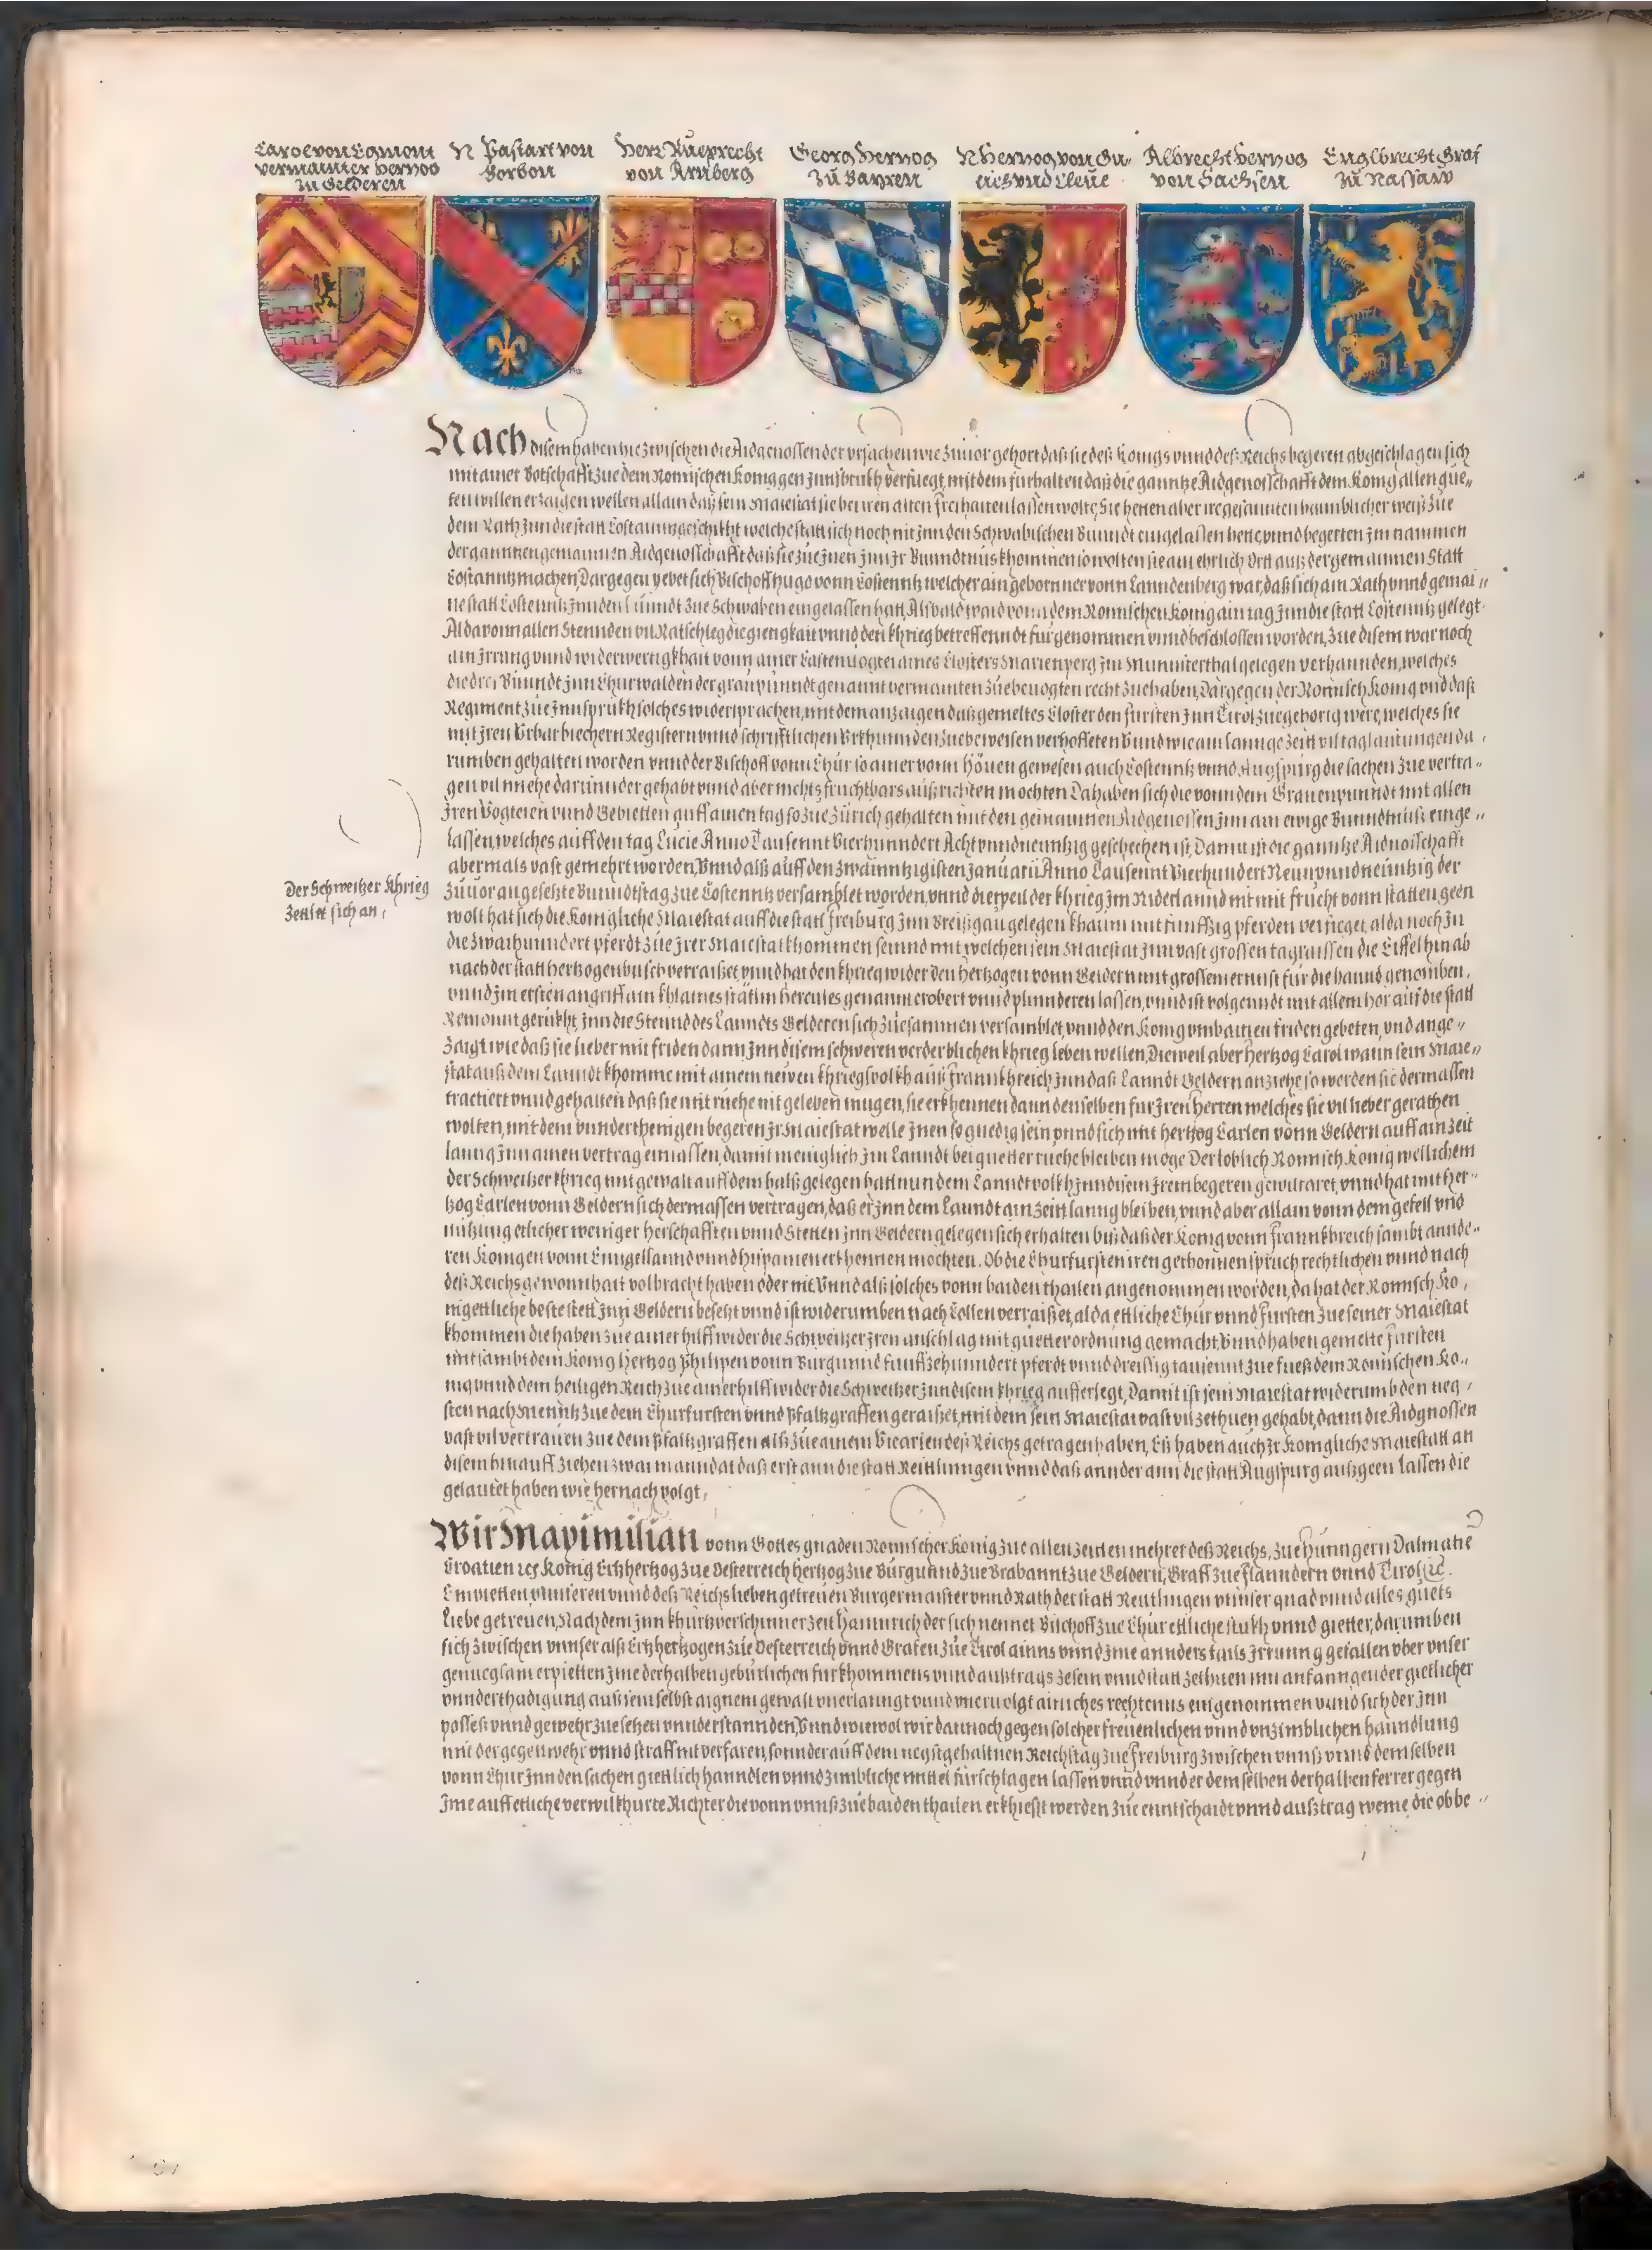 Carol von Egmont
vermainter Hertzog
zu Gelderen
N Pastart von
Borbon
Herr Rueprecht
von Arnberg
Georg Hertzog
zů Bayren
N Hertzog von Gu-
lich vnd Cleue
Albrecht Hertzog
von Sachsen
Englbrecht Graf
zů Nassaw
Nach disem haben hiezwischen die Aidgenossen der vrsachen wie zuuor gehort daß sie deß Konigs vnnd deß Reichs begeren abgeschlagen sich
mit ainer Botschafft zue dem Romischen Konig gen Jnnsbrukh verfuegt, mit dem furhalten daß die ganntze Aidgenosschafft dem Konig allen gue„
ten willen erzaigen wellen allain daß sein Maiestat sie bei iren alten freihaiten lassen wolte, Sie hetten aber ire gesannten haimblicher weiß zue
dem Rath Jnn die statt Costanntz geschikht welche statt sich noch nit Jnn den Schwabischen Bunndt eingelassen hette vnnd begerten Jm nammen
der ganntzen gemainnen Aidgenosschafft daß sie zue Jnen Jnn Jr Bunndtnus khommen so wolten sie ain ehrlich Ort auß der gemainnen Statt
Costanntz machen, Dargegen yebet sich Bischoff Hugo vonn Costenntz welcher ain geborner vonn Lanndenberg war, daß sich ain Rath vnnd gemai„
ne statt Costenntz Jnn den Bunndt zue Schwaben eingelassen hatt, Alsbald ward vonn dem Romischen Konig ain tag Jnn die statt Costenntz gelegt.
Alda vonn allen Stennden vil Ratschleg die girigkait vnnd den khrieg betreffenndt furgenommen vnnd beschlossen worden, Zue disem war noch
ain Jrrung vnnd widerwertigkhait vonn ainer Castenuogtei aines Closters Marienperg Jm Munnsterthal gelegen verhannden, welches
die drei Bunndt Jnn Churwalden der grau punndt genannt vermainten zue beuogten recht zue haben, Dargegen der Romisch Konig vnd daß
Regiment zue Jnnsprukh solches widersprachen, mit dem anzaigen daß gemeltes Closter den fursten Jnn Tirol zuegehorig were, welches sie
mit Jren Vrbarbiechern Registern vnnd schrifftlichen Vrkhunnden zue beweisen verhoffeten Vnnd wie ain lannge zeitt vil taglaitungen da,
rumben gehalten worden vnnd der Bischoff vonn Chur so ainer vonn Höuen gewesen auch Costenntz vnnd Augspurg die sachen zue vertra„
gen vil miehe darunnder gehabt vnnd aber nichts fruchtbars außrichten mochten Da haben sich die vonn dem Grauen punndt mit allen
Jren Vogteien vnnd Gebietten auff ainen tag so zue Zürich gehalten mit den gemainnen Aidgenossen Jnn ain ewige Bunndtnuß einge„
lassen, welches auff den tag Lucie Anno Tausennt Vierhunndert Acht vnnd neuntzig geschechen ist, Damit ist die ganntze Aidnosschafft
abermals vast gemehrt worden, Vnnd alß auff den zwainntzigisten Januarii Anno Tausennt Vierhundert Neun vnnd neuntzig der
Der Schweitzer Khrieg
zettlet sich an,
zuuor angesetzte Bunndtstag zue Costenntz versamblet worden, vnnd dieweil der khrieg Jm Niderlannd nit mit frucht vonn statten geen
wolt hat sich die Konigliche Maiestat auff die statt freiburg Jnn Breißgau gelegen khaum mit funffzig pferden verfueget, alda noch Jn
die zwaihunndert pferdt zue Jrer Maiestat khommen seinnd mit welchen sein Maiestat Jnn vast grossen tagraissen die Eiffel hinab
nach der statt Hertzogenbusch verraißet, vnnd hat den khrieg wider den Hertzogen vonn Geldern mit grossem ernnst fur die hannd genomben,
vnnd Jm ersten angriff ain khlaines stätlin Hercules genannt erobert vnnd plunnderen lassen, vnnd ist volgenndt mit allem hör auf die statt
Remonnt gerukht, Jnn die Stennd des Lanndts Gelderen sich zuesammen versamblet, vnnd den Konig vmb ainen friden gebeten, vnd ange„
zaigt wie daß sie lieber mit friden dann Jnn disem schweren verderblichen khrieg leben wellen, Dieweil aber Hertzog Carol wann sein Maie„
stat auß dem Lanndt khomme mit ainem newen khriegsvolkh auß Frannkhreich Jnn daß Lanndt Geldern anziehe so werden sie dermassen
tractiert vnnd gehalten daß sie mit ruehe nit geleben mugen, sie erkhennen dann denselben fur Jren herren welches sie vil lieber gerathen
wolten, mit dem vnnderthenigen begeren Jr Maiestat welle Jnen so gnedig sein vnnd sich mit Hertzog Carlen vonn Geldern auff ain zeit
lanng Jnn ainen vertrag einlassen, damit meniglich Jm Lanndt bei guetter ruehe bleiben möge Der loblich Romisch Konig wellichem
der Schweitzer khrieg mit gewalt auff dem halß gelegen hatt nun dem Lanndtvolkh Jnn disem Jrem begeren gewilfaret, vnnd hat mit Her„
tzog Carlen vonn Geldern sich dermassen vertragen, daß er Jnn dem Lanndt ain zeitt lanng bleiben, vnnd aber allain vonn dem gefell vnd
nutzung etlicher weniger herschafften vnnd Stetten Jnn Geldern gelegen sich erhalten biß daß der Konig vonn Frannkhreich sambt annde„
ren Konigen vonn Enngellannd vnnd Hispanien erkhennen mochten, Ob die Churfursten iren gethonnen spruch rechtlichen vnnd nach
deß Reichs gewonnhait volbracht haben oder nit Vnnd alß solches vonn baiden thailen angenommen worden, da hat der Romisch Ko,
nig ettliche beste stett Jnn Geldern besetzt vnnd ist widerumben nach Collen verraißet, alda ettliche Chur vnnd Fursten zue seiner Maiestat
khommen die haben zue ainer hilff wider die Schweitzer Jren anschlag mit guetter ordnung gemacht, Vnnd haben gemelte Fursten
mit sambt dem Konig Hertzog Philipen vonn Burgunnd funffzehunndert pferdt vnnd dreissig tausennt zue fueß dem Romischen Ko,
nig vnnd dem heiligen Reich zue ainer hilff wider die Schweitzer Jnn disem khrieg aufferlegt, Damit ist sein Maiestat widerumb den neg,
sten nach Menntz zue dem Churfursten vnnd Pfaltzgraffen geraißet, mit dem sein Maiestat vast vil zethuen gehabt, dann die Aidgnossen
vast vil vertrauen zue dem Pfaltzgraffen alß zue ainem Vicarien deß Reichs getragen haben, Eß haben auch Jr Konigliche Maiestatt an
disem hinauff ziehen zwai manndat daß erst ann die statt Reittlinngen vnnd daß annder ann die statt Augspurg außgeen lassen die
gelautet haben wie hernach volgt,
Wir Maximilian vonn Gottes gnaden Romischer Konig zue allen zeitten mehrer deß Reichs, zue Hunngern Dalmatie
Croatien ꝛc Konig Ertzhertzog zue Oesterreich Hertzog zue Burgunnd zue Brabannt zue Geldern, Graff zue Flanndern vnnd Tirol ꝛc.
Empietten vnnseren vnnd deß Reichs lieben getreuen Burgermaister vnnd Rath der statt Reutlingen vnnser gnad vnnd alles guets
Liebe getreuen, Nach dem Jnn khurtzverschinner zeit Hainnrich der sich nennet Bischoff zue Chur ettliche stukh vnnd gietter, darumben
sich zwischen vnnser alß Ertzhertzogen zue Oesterreich vnnd Grafen zue Tirol ainns vnnd Jme annders tails Jrrunng gefallen vber vnser
genuegsam erpietten Jme derhalben gebürlichen furkhommens vnnd außtrags zesein vnnd statt zethuen mit anfanngen der gietlicher
vnnderthadigung auß sein selbst aignem gewalt vnerlanngt vnnd vneruolgt ainiches rechtenns eingenommen vnnd sich der Jnn
posseß vnnd gewehr zue setzen vnnderstannden, Vnnd wiewol wir dannoch gegen solcher freuenlichen vnnd vnzimblichen hanndlung
mit der gegenwehr vnnd straff nit verfaren, sonnder auff dem negst gehaltnen Reichstag zue Freiburg zwischen vnnß vnnd demselben
vonn Chur Jnn den sachen giettlich hanndlen vnnd zimbliche mittel fürschlagen lassen vnnd vnnder demselben derhalben ferrer gegen
Jme auff etliche verwilkhurte Richter die vonn vnnß zue baiden thailen erkhiest werden zue enntschaidt vnnd außtrag weme die obbe„